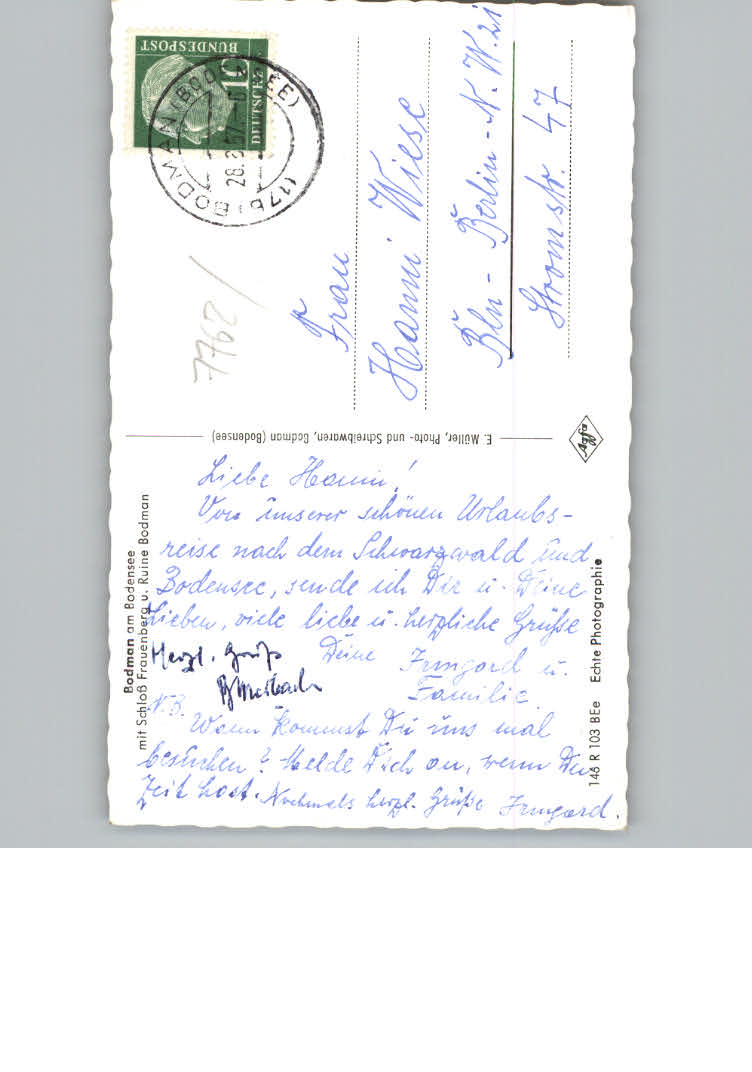 DEUTSCHE
BUNDESPOST
10
(17b) BODMAN (BODENSEE)
28.8.57
7762
Frau
Hanni Wiese
Bln - Berlin - N.W. 21
Stromstr. 47
E. Müller, Photo- und Schreibwaren, Bodman (Bodensee)
Agfa
Bodman am Bodensee
mit Schloß Frauenberg u. Ruine Bodman
Liebe Hanni!
Von unserer schönen Urlaubs-
reise nach dem Schwarzwald und
Bodensee, sende ich Dir u. Deine
Lieben, viele liebe u. herzliche Grüße
Deine Irmgard u.
Familie.
Herzl. Grüße
N.B.
Wann kommst Du uns mal
besuchen? Melde Dich an, wenn Du
Zeit hast. Nochmals herzl. Grüße Irmgard.
146 R 103 BEe Echte Photographie